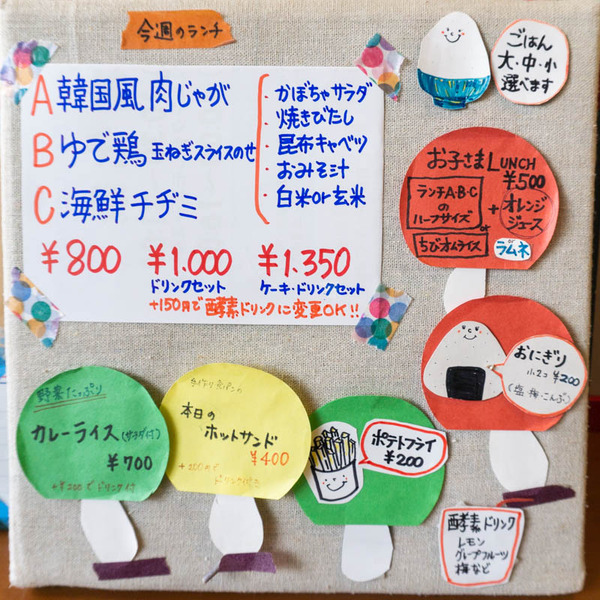 今週のランチ
A 韓国風肉じゃが
B ゆで鶏 玉ねぎスライスのせ
C 海鮮チヂミ
・かぼちゃサラダ
・焼きびたし
・昆布キャベツ
・おみそ汁
・白米or玄米
¥800
¥1.000
ドリンクセット
¥1.350
ケーキ・ドリンクセット
+150円で酵素ドリンクに変更OK!!
ごはん
大・中・小
選べます
お子さまLUNCH
¥500
ランチA・B・C
の
ハーフサイズ
or
ちびオムライス
+オレンジ
ジュース
or
ラムネ
おにぎり
小2コ ¥200
(塩・梅・こんぶ)
野菜たっぷり
カレーライス(サラダ付)
¥700
+¥200でドリンク付
手作り食パンの
本日の
ホットサンド
¥400
+200円で
ドリンク付き
ポテトフライ
¥200
酵素ドリンク
レモン
グレープフルーツ
梅など